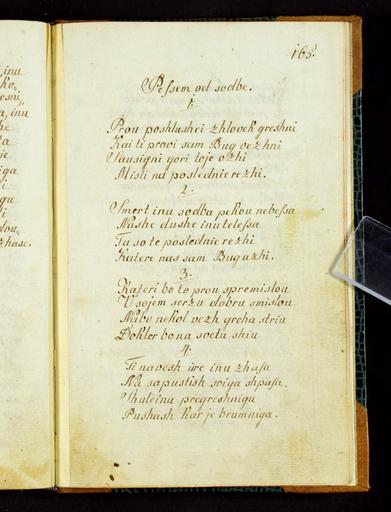 inu
ko
esni,
a, inu
he
ta
je
iga
i
gu
di
lou,
zhase.
165.
Pessem od sodbe.
1.
Prou poshlushei zhlovek greshni
Kai ti provi sam Bug vezhni
Sausigni gori toje ozhi
Misli na poslednie rezhi.
2.
Smert inu sodba pekou nebessa
Nashe dushe inu telessa
Ta so te poslednie rezhi
Katere nas sam Bug uzhi.
3.
Kateri bo te prou spremislou
V sojem serzu dobru smislou
Nabo nekol vezh greha striu
Dokler bo na svetu shiu
4.
Ti navesh ure inu zhasa
Na sapustish soiga shpasa.
Shuleinu pregreshniga
Pushash kar je brumniga.